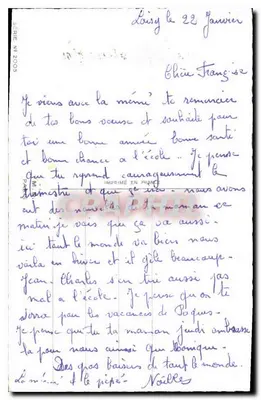 Loisy le 22 Janvier
Chère Françoise
Je viens avec la mémé te remercier
de tes bons voeux et souhaite pour
toi une bonne année bonne santé
et bonne chance a l'école.. Je pense
que tu reprend courageusement le
trimestre et que ça va - nous avons
eut des nouvelles de ta maman ce
matin je vois que ça va aussi -
ici tout le monde va bien nous
voila en hiver et il gèle beaucoup -
Jean-Charles s'en tire aussi pas
mal a l'école - Je pense qu'on te
verra pour les vacances de Pâques -
Je pense que tu ta maman jeudi embrasse
la pour nous ainsi que Monique -
Des gros baisers de tout le monde.
La mémé et le pépé - Noëlle
IMPRIMÉ EN FRANCE